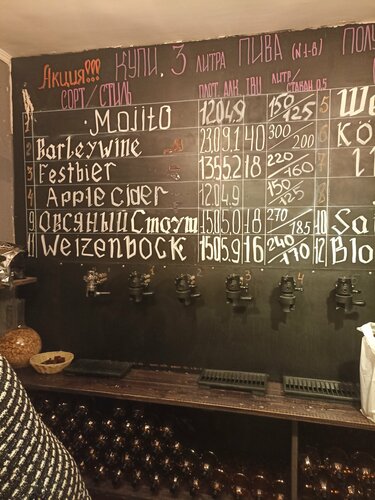 Акция!!! КУПИ 3 ЛИТРА ПИВА (N1-8) ПОЛУ
СОРТ/СТИЛЬ ПЛОТ АЛК IBU ЛИТР/СТАКАН 0.5
1 Mojito 12.0 4.9 150/125 5 We
2 Barleywine 23.0 9.1 40 300/200 6 Kö
3 Festbier 13.5 5.2 18 220/160 7
4 Apple Cider 12.0 4.9 150/125 8
9 Овсяный Стоут 15.0 5.0 18 270/185 10 Sa
11 Weizenbock 15.0 5.9 16 240/170 12 Blo
1 2 3 4